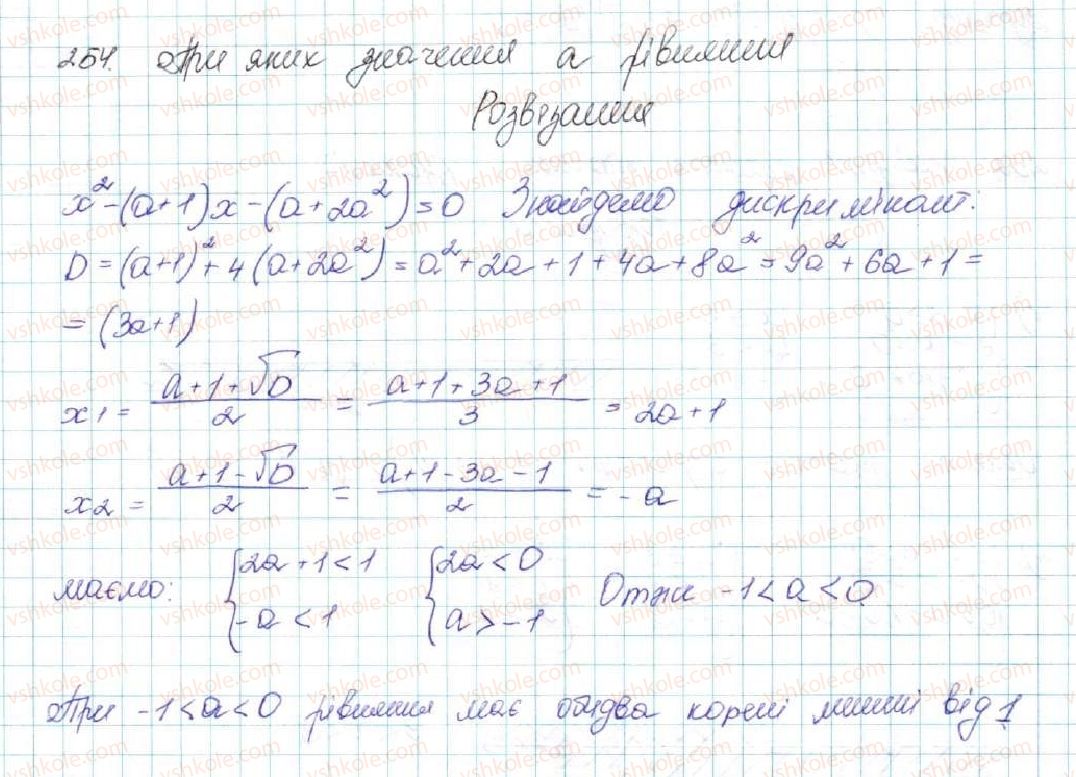 254. При яких значення а рівняння
Розвязання
x² - (a+1)x - (a+2a²) = 0 Знайдемо дискримінант:
D = (a+1)² + 4(a+2a²) = a² + 2a + 1 + 4a + 8a² = 9a² + 6a + 1 =
= (3a+1)
x1 = (a+1+√D)/2 = (a+1+3a+1)/3 = 2a+1
x2 = (a+1-√D)/2 = (a+1-3a-1)/2 = -a
маємо: { 2a+1<1 { 2a<0 Отже -1<a<0
-a<1 a>-1
При -1<a<0 рівняння має обидва корені менші від 1